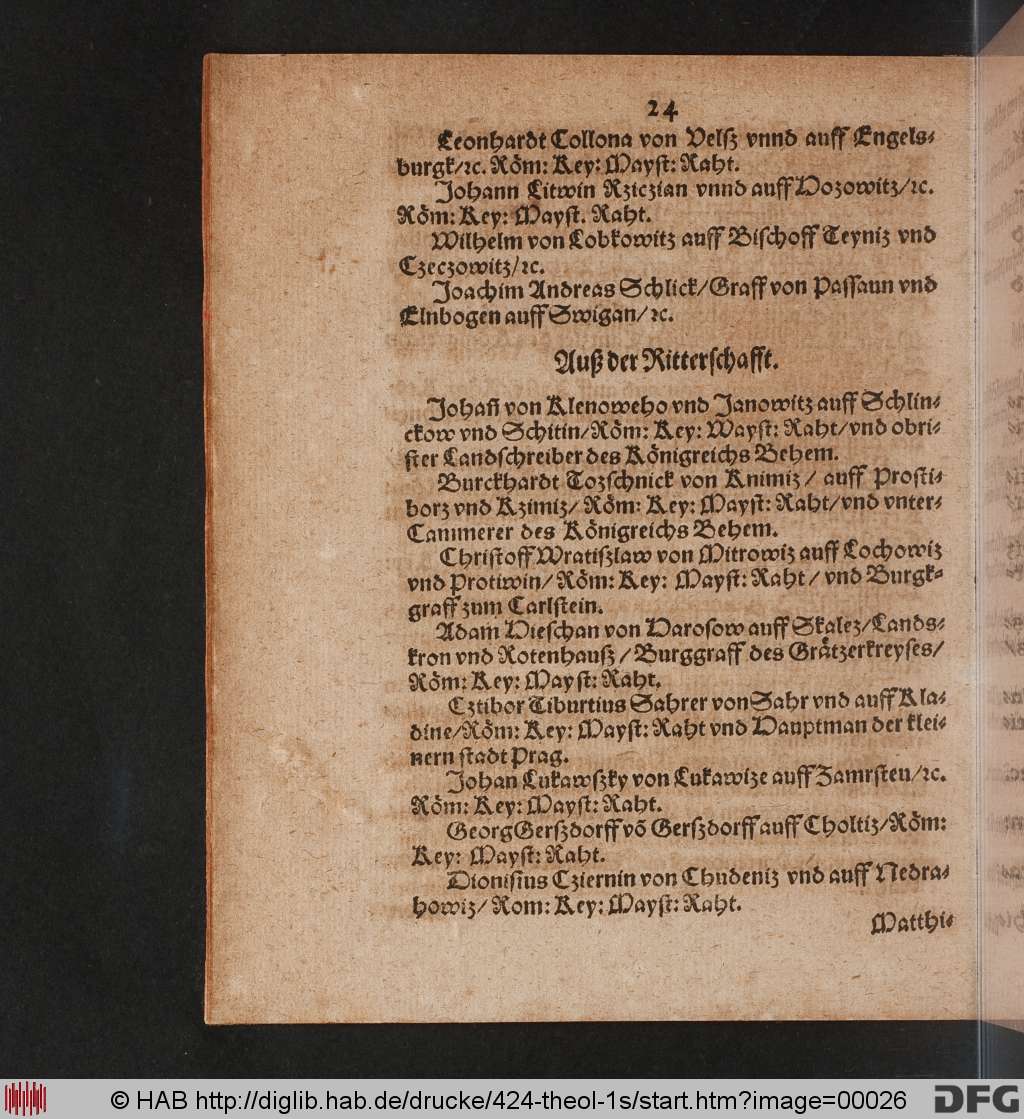 24
Leonhardt Collona von Velsz vnnd auff Engels⸗
burgk/ꝛc. Röm: Key: Mayſt: Raht.
Johann Litwin Rziczian vnnd auff Hozowitz/ꝛc.
Röm: Key: Mayſt. Raht.
Wilhelm von Lobkowitz auff Biſchoff Teyniz vnd
Czeczowitz/ꝛc.
Joachim Andreas Schlick/Graff von Paſſaun vnd
Elnbogen auff Swigan/ꝛc.
Auß der Ritterſchafft.
Johañ von Klenoweho vnd Janowitz auff Schlin⸗
ckow vnd Schitin/Röm: Key: Mayſt: Raht/vnd obri⸗
ſter Landſchreiber des Königreichs Behem.
Burckhardt Tozſchnick von Knimiz / auff Proſti⸗
borz vnd Kzimiz/ Röm: Key: Mayſt: Raht/vnd vnter⸗
Cammerer des Königreichs Behem.
Chriſtoff Wratiſzlaw von Mitrowiz auff Lochowiz
vnd Protiwin/ Röm: Key: Mayſt: Raht / vnd Burgk⸗
graff zum Carlſtein.
Adam Hieſchan von Haroſow auff Skalez/Lands⸗
kron vnd Rotenhauſz / Burggraff des Grätzerkreyſes/
Röm: Key: Mayſt: Raht.
Cztibor Tiburtius Sahrer von Sahr vnd auff Kla⸗
dine/Röm: Key: Mayſt: Raht vnd Hauptman der klei⸗
nern ſtadt Prag.
Johan Lukawſzky von Lukawize auff Zamrſteu/ꝛc.
Röm: Key: Mayſt: Raht.
Georg Gerſzdorff võ Gerſzdorff auff Choltiz/Röm:
Key: Mayſt: Raht.
Dioniſius Cziernin von Chudeniz vnd auff Nedra⸗
howiz/ Rom: Key: Mayſt: Raht.
Matthi⸗
© HAB http://diglib.hab.de/drucke/424-theol-1s/start.htm?image=00026
DFG